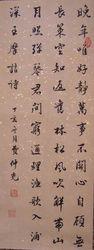 晚年唯好靜萬事不關心自顧無
長策空知返舊林松風吹解帶山
月照彈琴君問窮通理漁歌入浦
深 王摩詰詩 丁亥